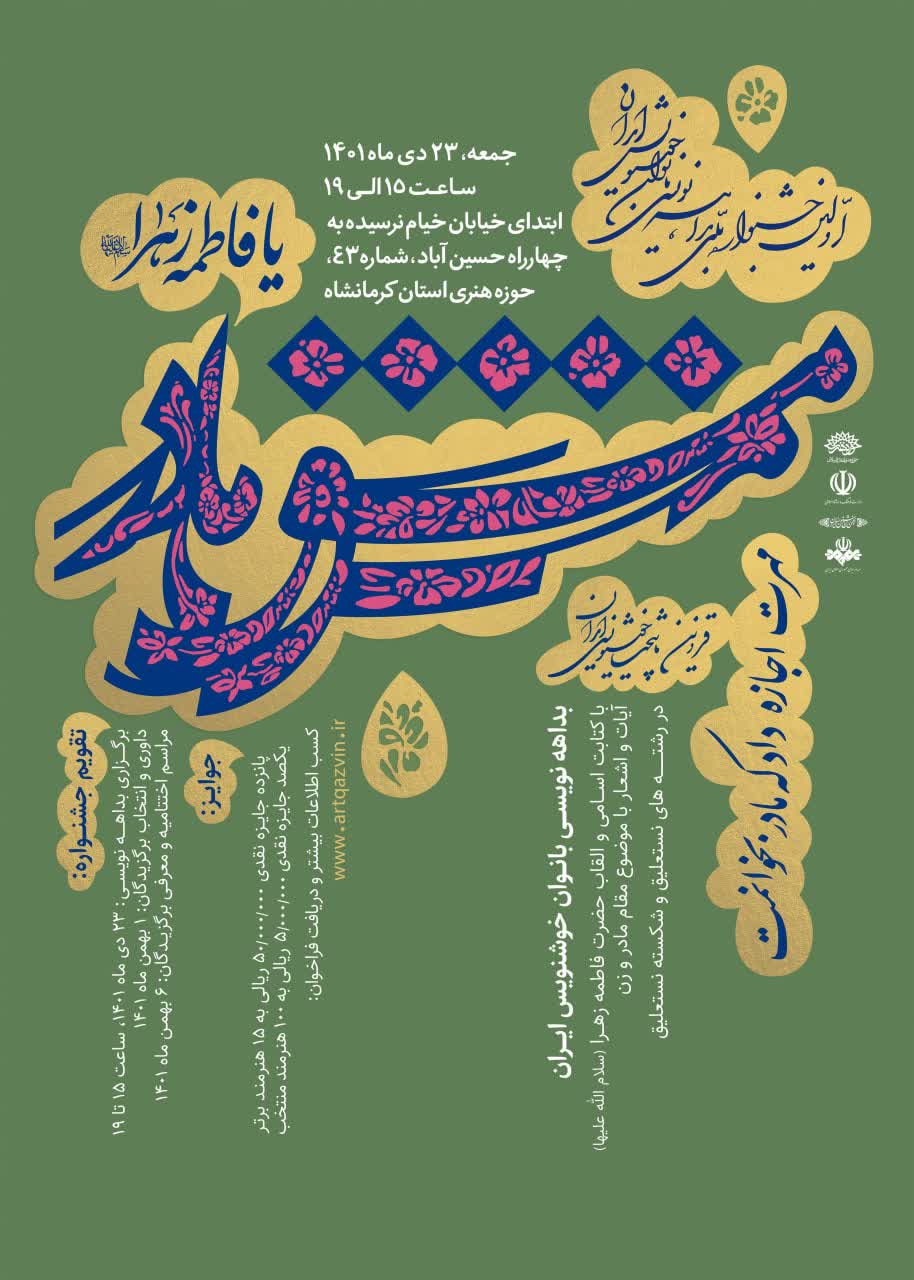 اولین جشنواره ملی بداهه نویسی بانوان خوشنویس ایران
جمعه، ۲۳ دی ماه ۱۴۰۱
ساعت ۱۵ الی ۱۹
ابتدای خیابان خیام نرسیده به
چهارراه حسین آباد، شماره ۴۳،
حوزه هنری استان کرمانشاه
یا فاطمه زهرا
مشق مادر
قزوین پایتخت خوشنویسی ایران
مهرت اجازه داد که مادر بخوانمت
بداهه نویسی بانوان خوشنویس ایران
با کتابت اسامی و القاب حضرت فاطمه زهرا (سلام الله علیها)
آیات و اشعار با موضوع مقام مادر و زن
در رشته های نستعلیق و شکسته نستعلیق
تقویم جشنواره:
برگزاری بداهه نویسی: ۲۳ دی ماه ۱۴۰۱، ساعت ۱۵ تا ۱۹
داوری و انتخاب برگزیدگان: ۱ بهمن ماه ۱۴۰۱
مراسم اختتامیه و معرفی برگزیدگان: ۶ بهمن ماه ۱۴۰۱
جوایز:
پانزده جایزه نقدی ۵۰/۰۰۰/۰۰۰ ریالی به ۱۵ هنرمند برتر
یکصد جایزه نقدی ۵/۰۰۰/۰۰۰ ریالی به ۱۰۰ هنرمند منتخب
کسب اطلاعات بیشتر و دریافت فراخوان:
www.artqazvin.ir